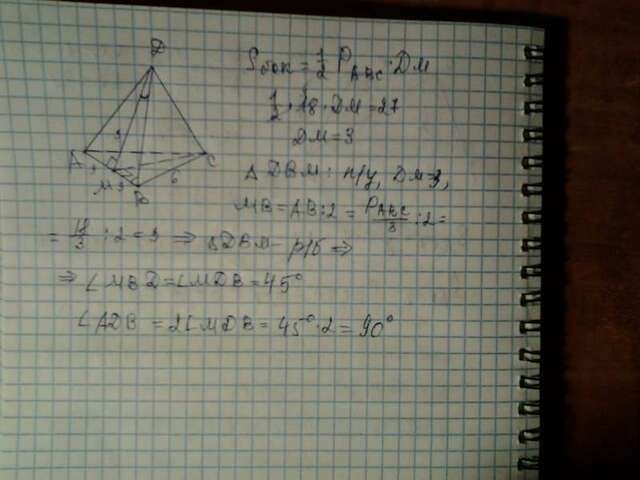 D
3
A
C
3
M
3
B
6
Sбок = 1/2 P_ABC · DM
1/2 · 18 · DM = 27
DM = 3
Δ DBM: п/у, DM=3,
MB = AB:2 = P_ABC/3 :2 =
= 18/3 :2 = 3 ⇒ ΔDBM – р/б ⇒
⇒ ∠MBD = ∠MDB = 45°
∠ADB = 2∠MDB = 45°·2 = 90°